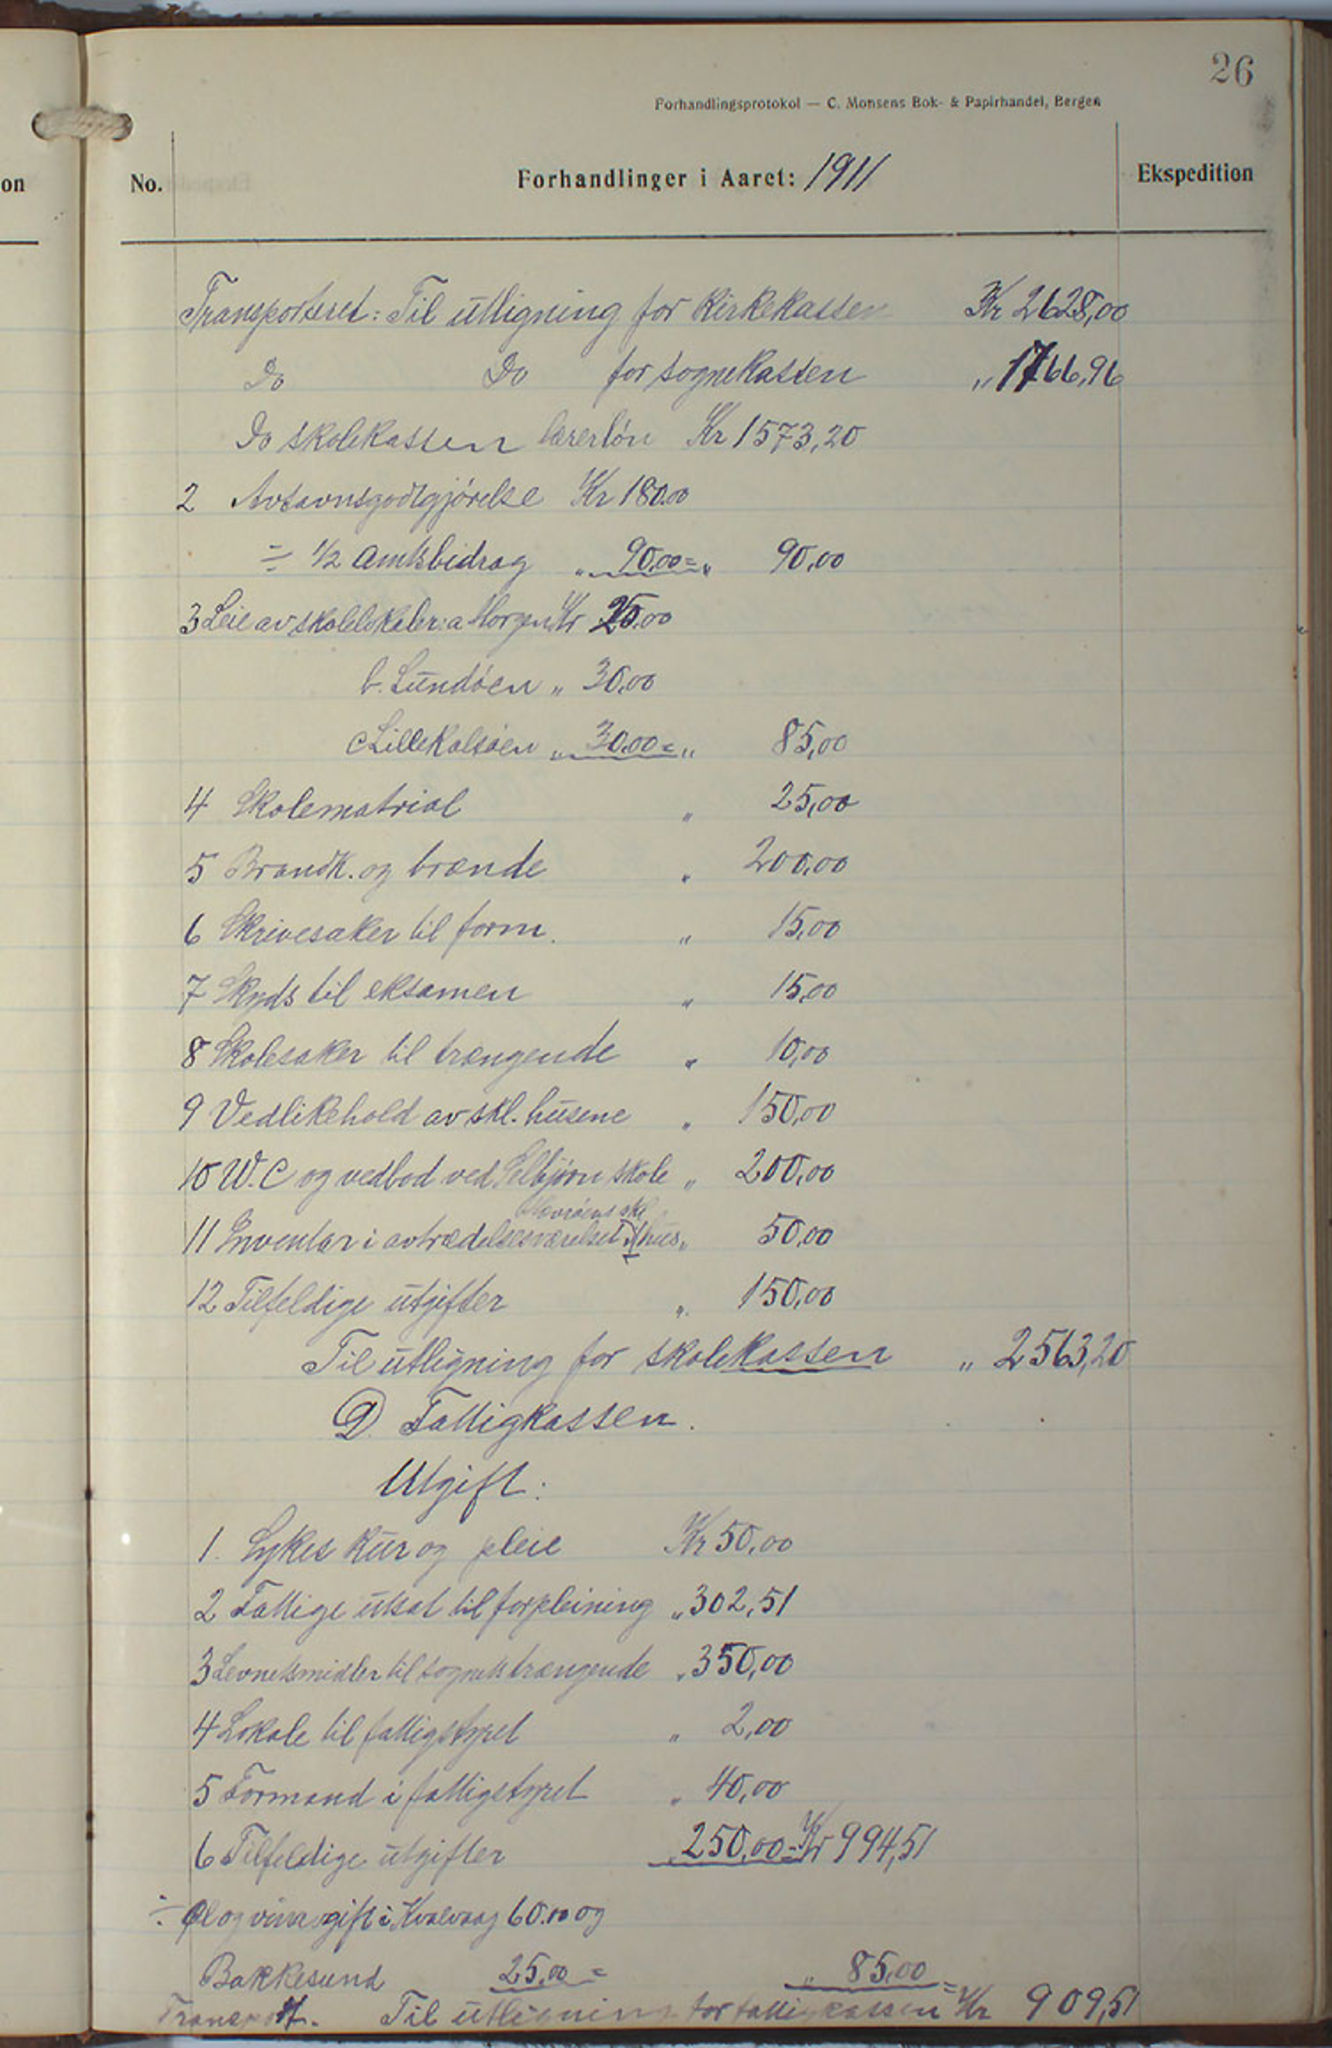 26
Forhandlingsprotokol — C. Monsens Bok- & Papirhandel, Bergen
on No. Forhandlinger i Aaret: 1911 Ekspedition
Transporteret: Til utligning for Kirkekassen Kr 2628,00
Do Do for sognekassen „ 1766,96
Do skolekassen lærerløn Kr 1573,20
2 Avsavnsgodtgjørelse Kr 180.00
÷ 1/2 Amtsbidrag „ 90.00 = „ 90,00
3 Leie av skolelokaler: a Horgen Kr 25.00
b. Lundøen „ 30,00
c Lillekalsøen „ 30.00 = „ 85,00
4 Skolematrial „ 25,00
5 Brandk. og brænde „ 200,00
6 Skrivesaker til form. „ 15,00
7 Skyds til eksamen „ 15,00
8 Skolesaker til trængende „ 10,00
9 Vedlikehold av skl. husene „ 150,00
10 W.C og vedbod ved Selbjørn skole „ 200,00
skl
11 Inventar i avtrædelsesværelset i hus „ 50,00
12 Tilfeldige utgifter „ 150,00
Til utligning for skolekassen „ 2563,20
D. Fattigkassen.
Utgift:
1. Sykes Kur og pleie Kr 50,00
2 Fattige utsat til forpleining „ 302,51
3 Levnetsmidler til sognets trængende „ 350,00
4 Lokale til fattigstyret „ 2,00
5 Formand i fattigstyret „ 40,00
6 Tilfeldige utgifter 250,00 = Kr 994,51
÷ Øl og vinavgift i Kvalvaag 60.00 og
Bakkesund 25,00 = „ 85,00
Transport. Til utligning for fattigkassen = Kr 909,51